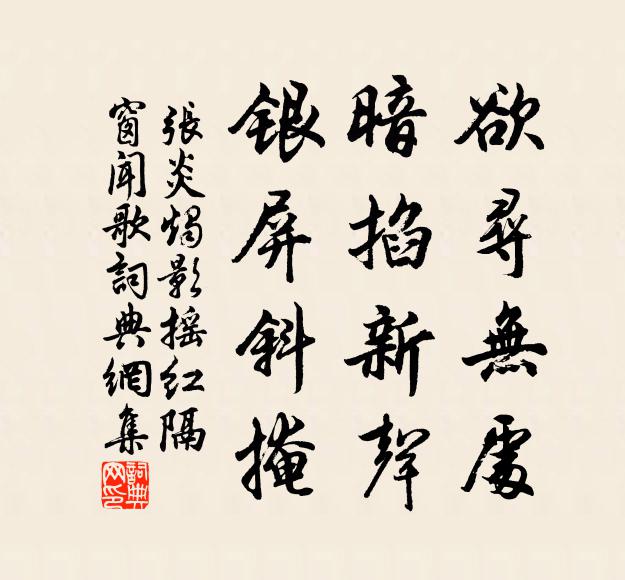 欲尋無處
暗掐新聲
銀屏斜掩
張炎燭影搖紅隔
窗聞歌詞典網集
詞典
网印